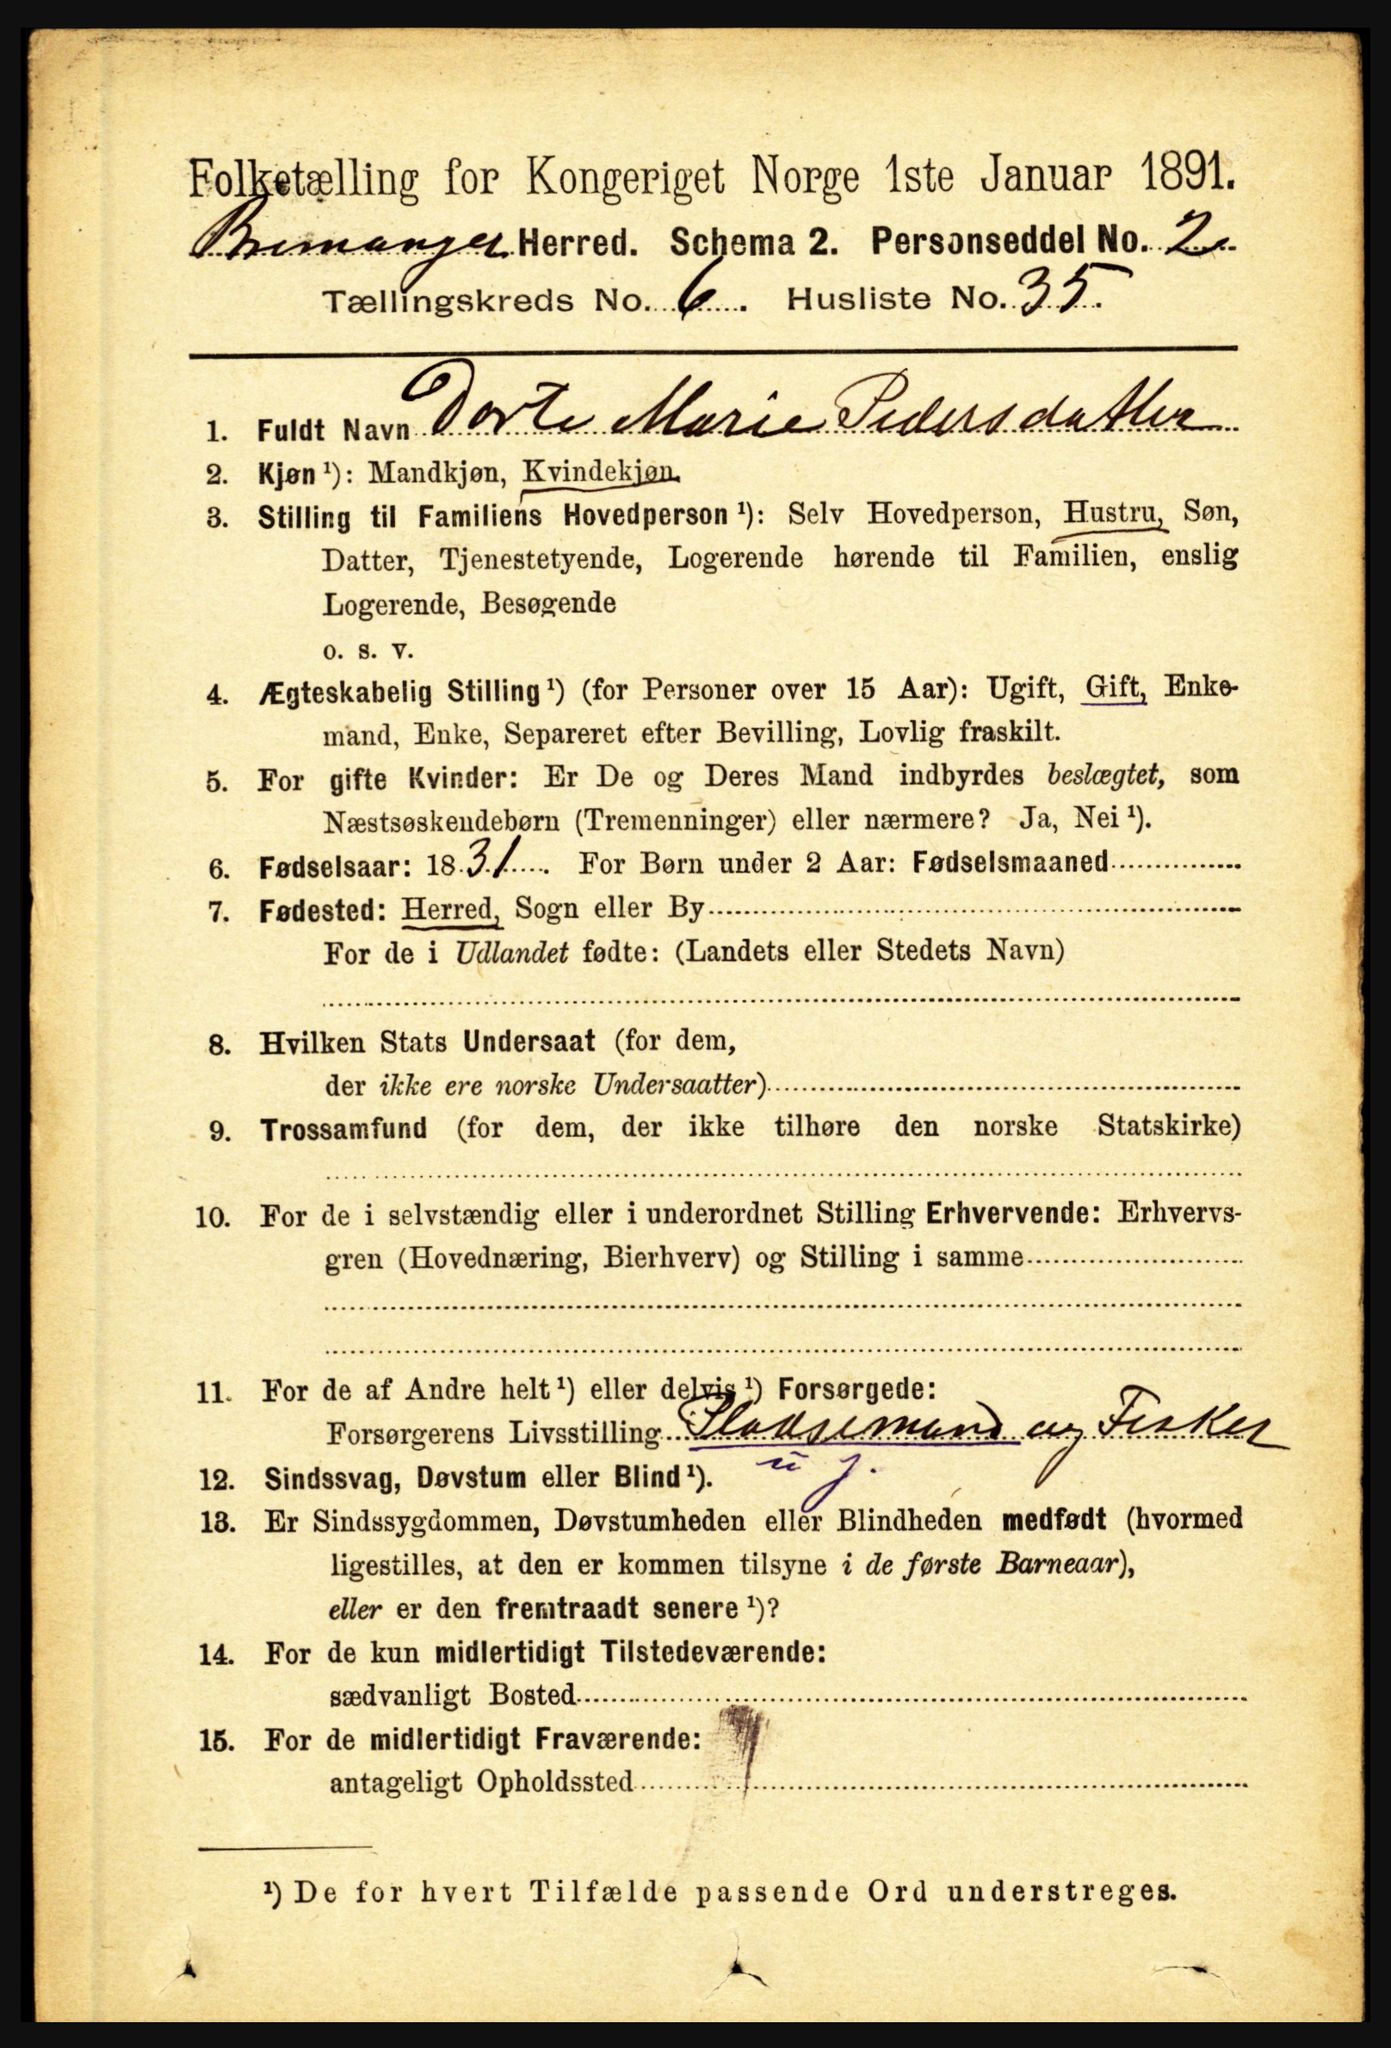 Folketælling for Kongeriget Norge 1ste Januar 1891.
Bremanger Herred. Schema 2. Personseddel No. 2.
Tællingskreds No. 6. Husliste No. 35.
1. Fuldt Navn Dorte Marie Pedersdatter
2. Kjøn ¹): Mandkjøn, Kvindekjøn
3. Stilling til Familiens Hovedperson ¹): Selv Hovedperson, Hustru, Søn,
Datter, Tjenestetyende, Logerende hørende til Familien, enslig
Logerende, Besøgende
o. s. v.
4. Ægteskabelig Stilling ¹) (for Personer over 15 Aar): Ugift, Gift, Enke-
mand, Enke, Separeret efter Bevilling, Lovlig fraskilt.
5. For gifte Kvinder: Er De og Deres Mand indbyrdes beslægtet, som
Næstsøskendebørn (Tremenninger) eller nærmere? Ja, Nei ¹).
6. Fødselsaar: 1831. For Børn under 2 Aar: Fødselsmaaned
7. Fødested: Herred, Sogn eller By
For de i Udlandet fødte: (Landets eller Stedets Navn)
8. Hvilken Stats Undersaat (for dem,
der ikke ere norske Undersaatter)
9. Trossamfund (for dem, der ikke tilhøre den norske Statskirke)
10. For de i selvstændig eller i underordnet Stilling Erhvervende: Erhvervs-
gren (Hovednæring, Bierhverv) og Stilling i samme
11. For de af Andre helt ¹) eller delvis ¹) Forsørgede:
Forsørgerens Livsstilling Pladsemand og Fisker
u j.
12. Sindssvag, Døvstum eller Blind ¹).
13. Er Sindssygdommen, Døvstumheden eller Blindheden medfødt (hvormed
ligestilles, at den er kommen tilsyne i de første Barneaar),
eller er den fremtraadt senere ¹)?
14. For de kun midlertidigt Tilstedeværende:
sædvanligt Bosted
15. For de midlertidigt Fraværende:
antageligt Opholdssted
¹) De for hvert Tilfælde passende Ord understreges.